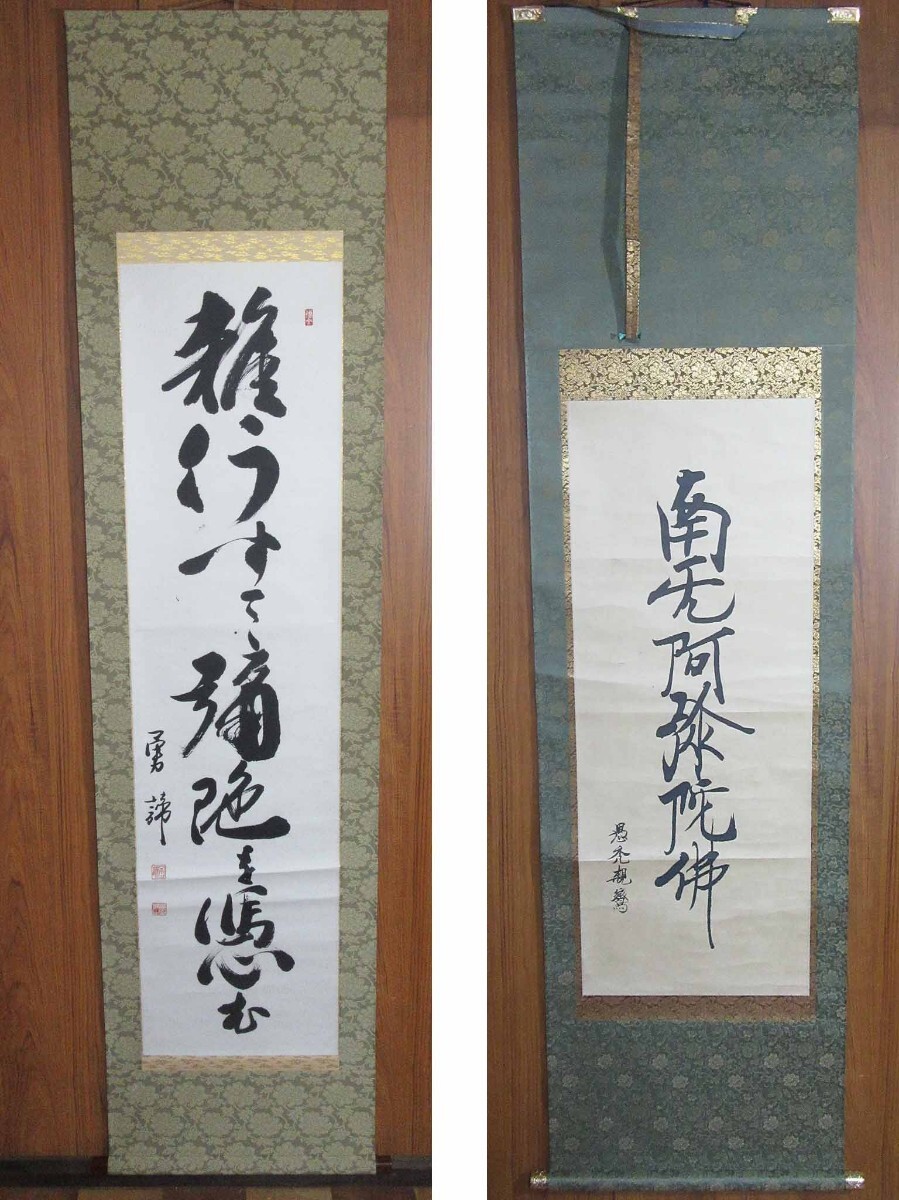 雜行すてゝ彌陀を憑む
勇諦
南无阿弥陀佛
愚禿親鸞